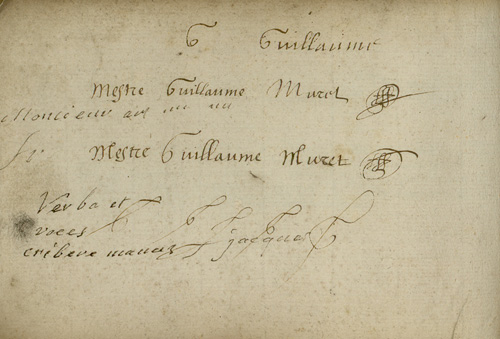 G Guillaume
Mestre Guillaume Muret
Moncieur
Mestre Guillaume Muret
Verba et
voces
jacques